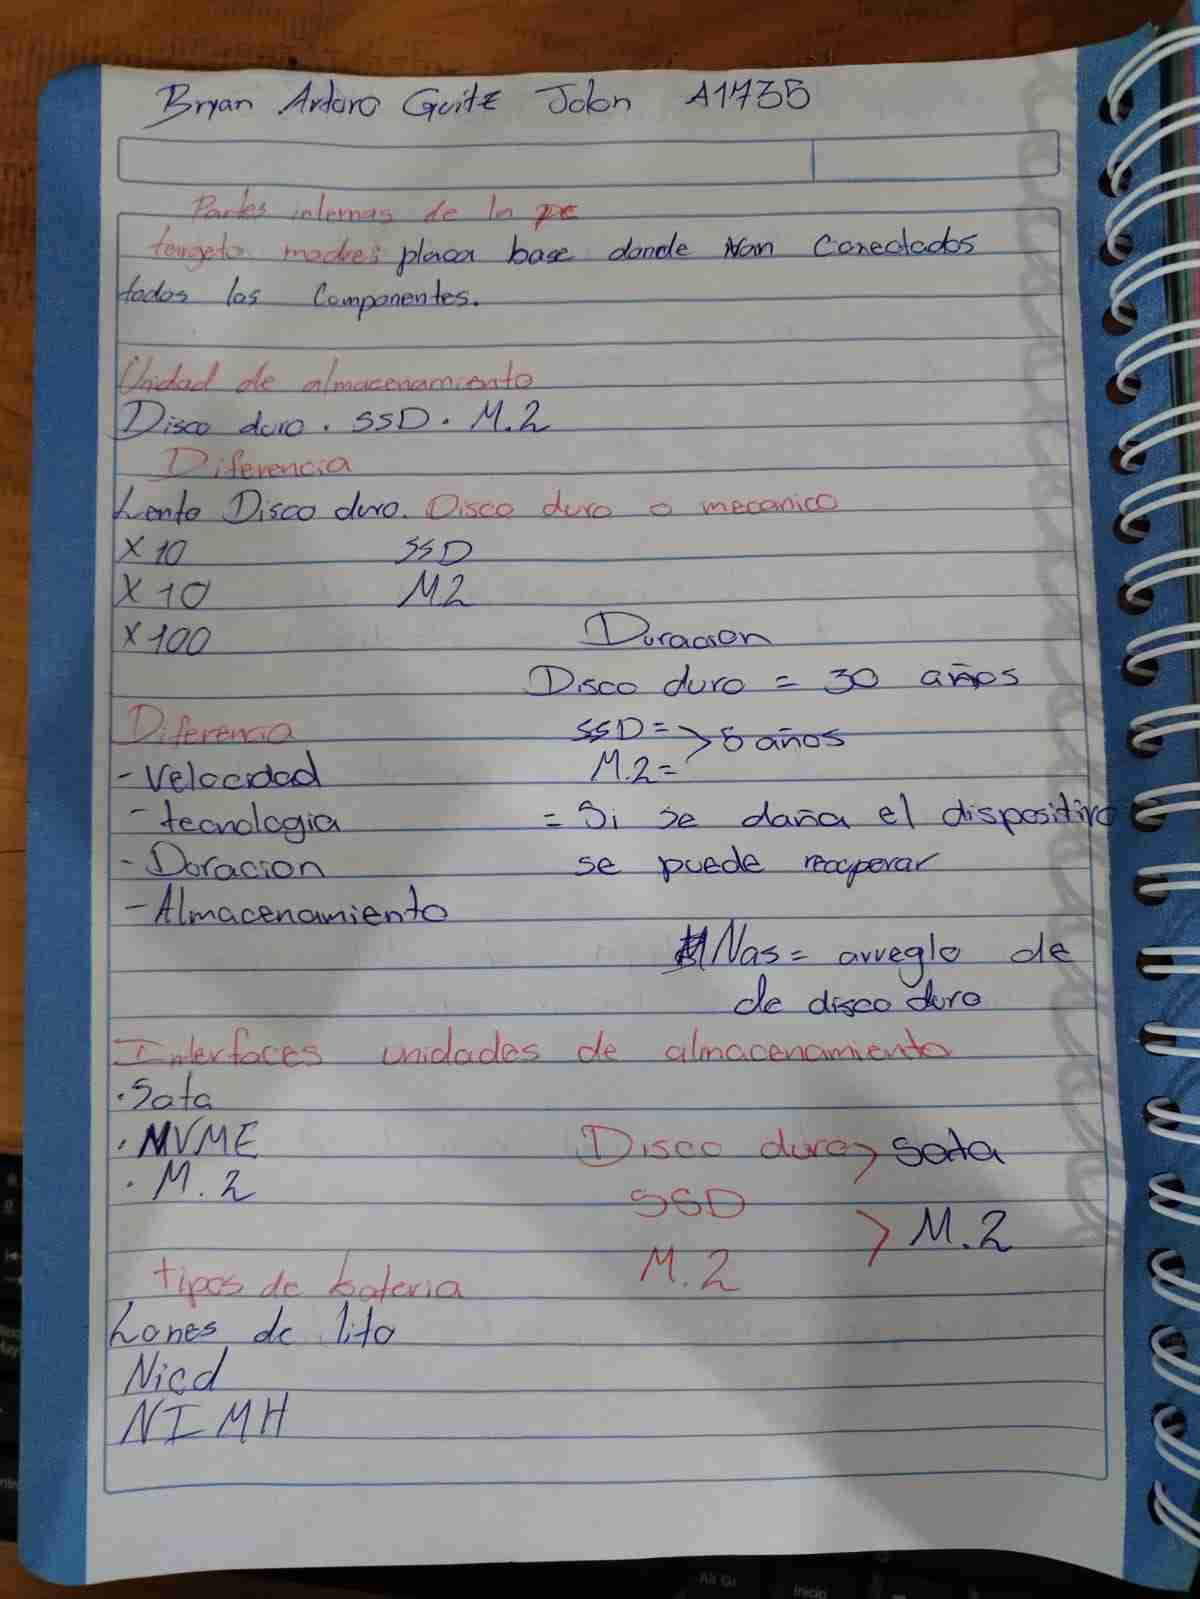 Bryan Arturo Guitz Jolon A1735
Partes internas de la pc
targeta madre: placa base donde van Conectados
todos los Componentes.
Unidad de almacenamiento
Disco duro . SSD . M.2
Diferencia
Lento Disco duro. Disco duro o mecanico
X 10 SSD
X 10 M2
X 100 Duracion
Disco duro = 30 años
Diferencia SSD= > 5 años
- Velocidad M.2=
- tecnologia = Si se daña el dispositivo
- Duracion se puede recuperar
- Almacenamiento
Nas = arreglo de
de disco duro
Interfaces unidades de almacenamiento
. Sata
. MVME Disco duro > Sata
. M.2 SSD
> M.2
tipos de bateria M.2
Lones de lito
Nicd
NIMH